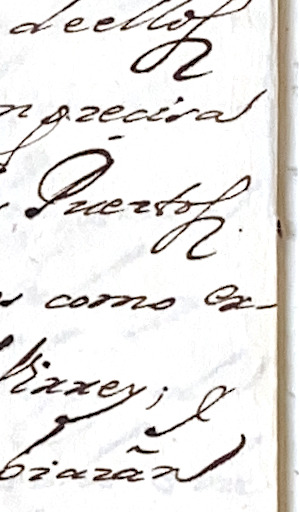 deellos
precisa
Puertos.
como ex-
Virrey; y
biarãn